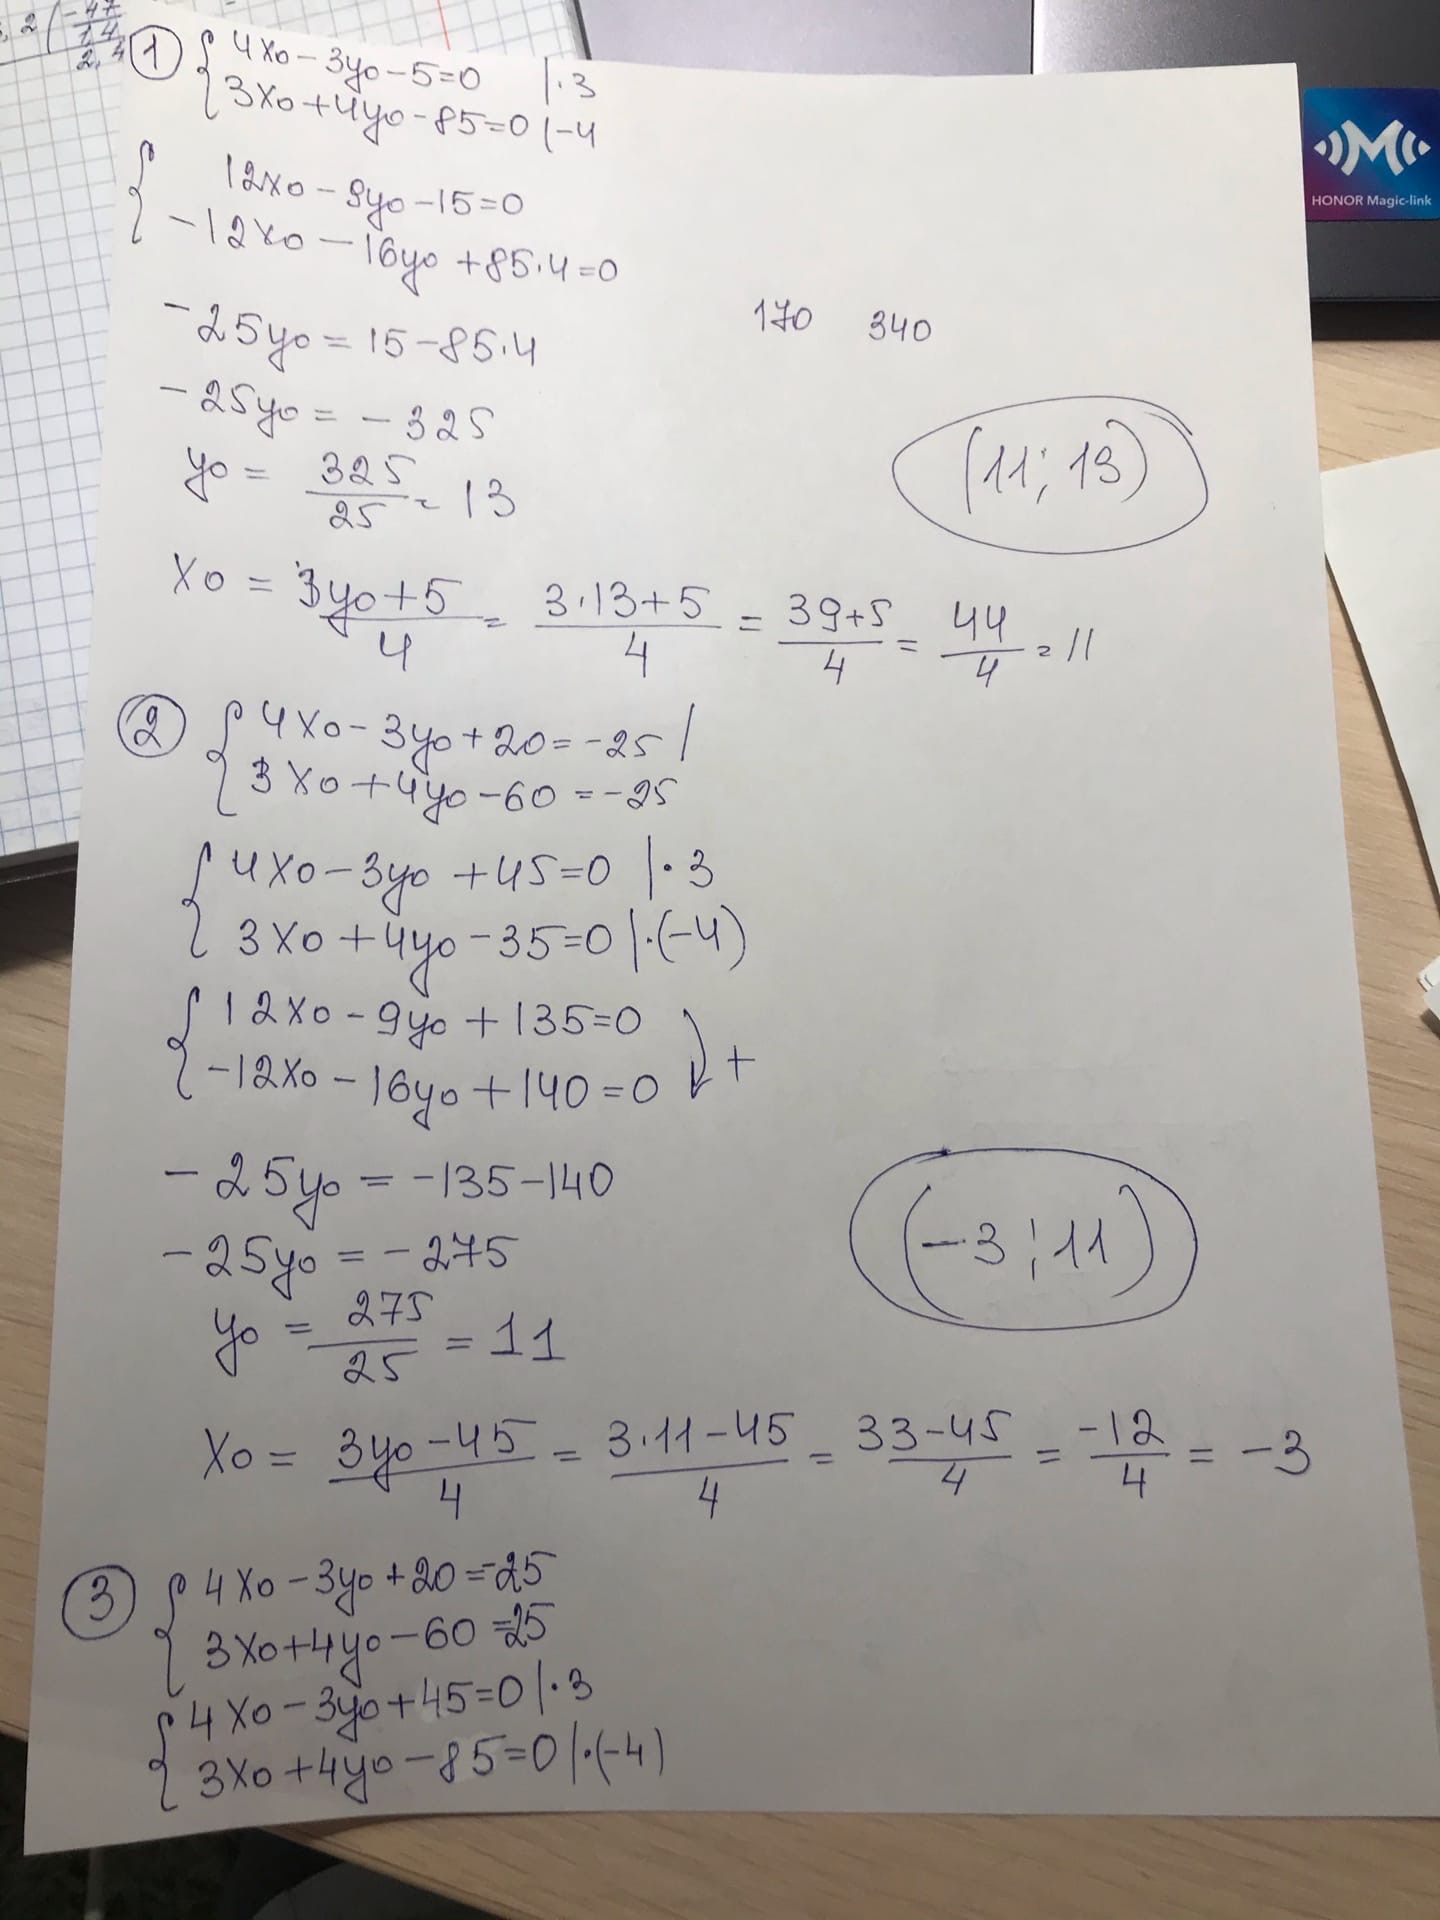 ① { 4x0 - 3y0 - 5 = 0 | · 3
3x0 + 4y0 - 85 = 0 | -4
{ 12x0 - 9y0 - 15 = 0
-12x0 - 16y0 + 85·4 = 0
-25y0 = 15 - 85·4
170 340
-25y0 = -325
y0 = 325/25 = 13
(11; 13)
x0 = (3y0+5)/4 = (3·13+5)/4 = (39+5)/4 = 44/4 = 11
② { 4x0 - 3y0 + 20 = -25 |
3x0 + 4y0 - 60 = -25
{ 4x0 - 3y0 + 45 = 0 | · 3
3x0 + 4y0 - 35 = 0 | · (-4)
{ 12x0 - 9y0 + 135 = 0
-12x0 - 16y0 + 140 = 0 +
-25y0 = -135 - 140
-25y0 = -275
(-3; 11)
y0 = 275/25 = 11
x0 = (3y0 - 45)/4 = (3·11 - 45)/4 = (33 - 45)/4 = -12/4 = -3
③ { 4x0 - 3y0 + 20 = -25
3x0 + 4y0 - 60 = 25
{ 4x0 - 3y0 + 45 = 0 | · 3
3x0 + 4y0 - 85 = 0 | · (-4)
HONOR Magic-link